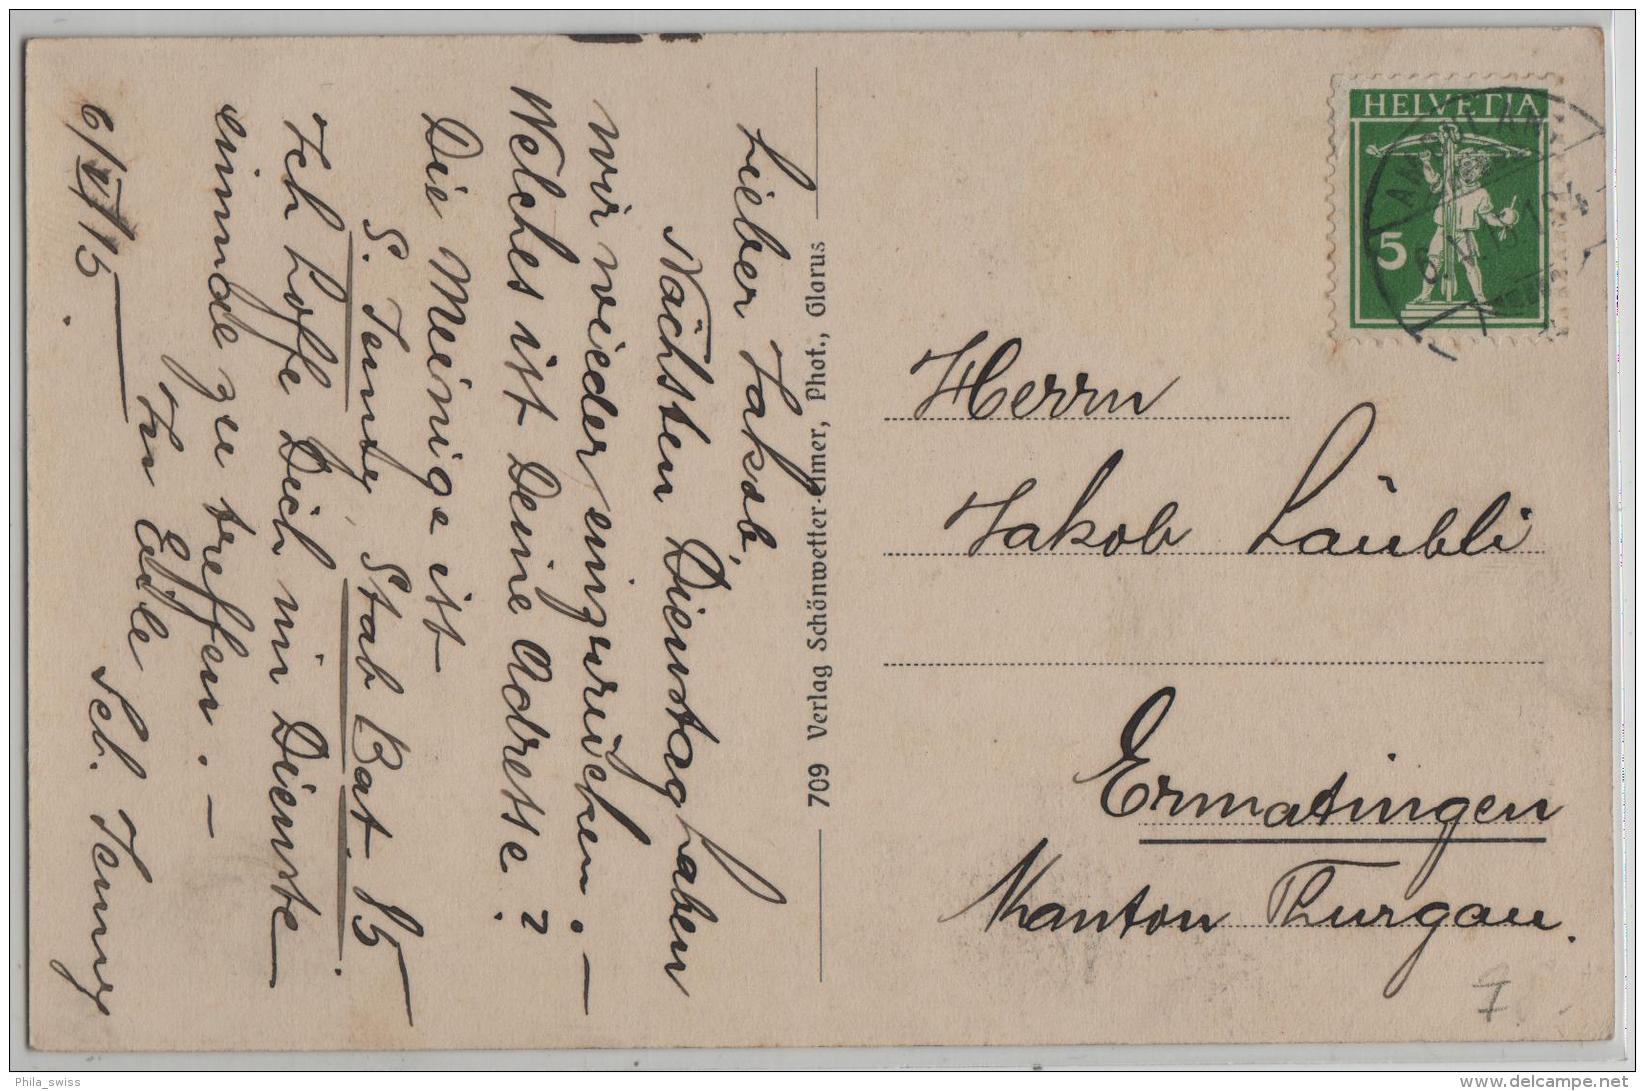 Lieber Jakob,
Nächsten Dienstag haben
wir wieder einzurücken. —
Welches ist Deine Adresse?
Die Meinige ist
S. Jenny, Stab Bat. 85.
Ich hoffe Dich im Dienste
einmal zu treffen. —
In Eile Seb. Jenny
6/VI 15
709 Verlag Schönwetter-Elmer, Phot., Glarus
HELVETIA
5
Herrn
Jakob Läubli
Ermatingen
Kanton Thurgau.
Phila_swiss
delcampe.net